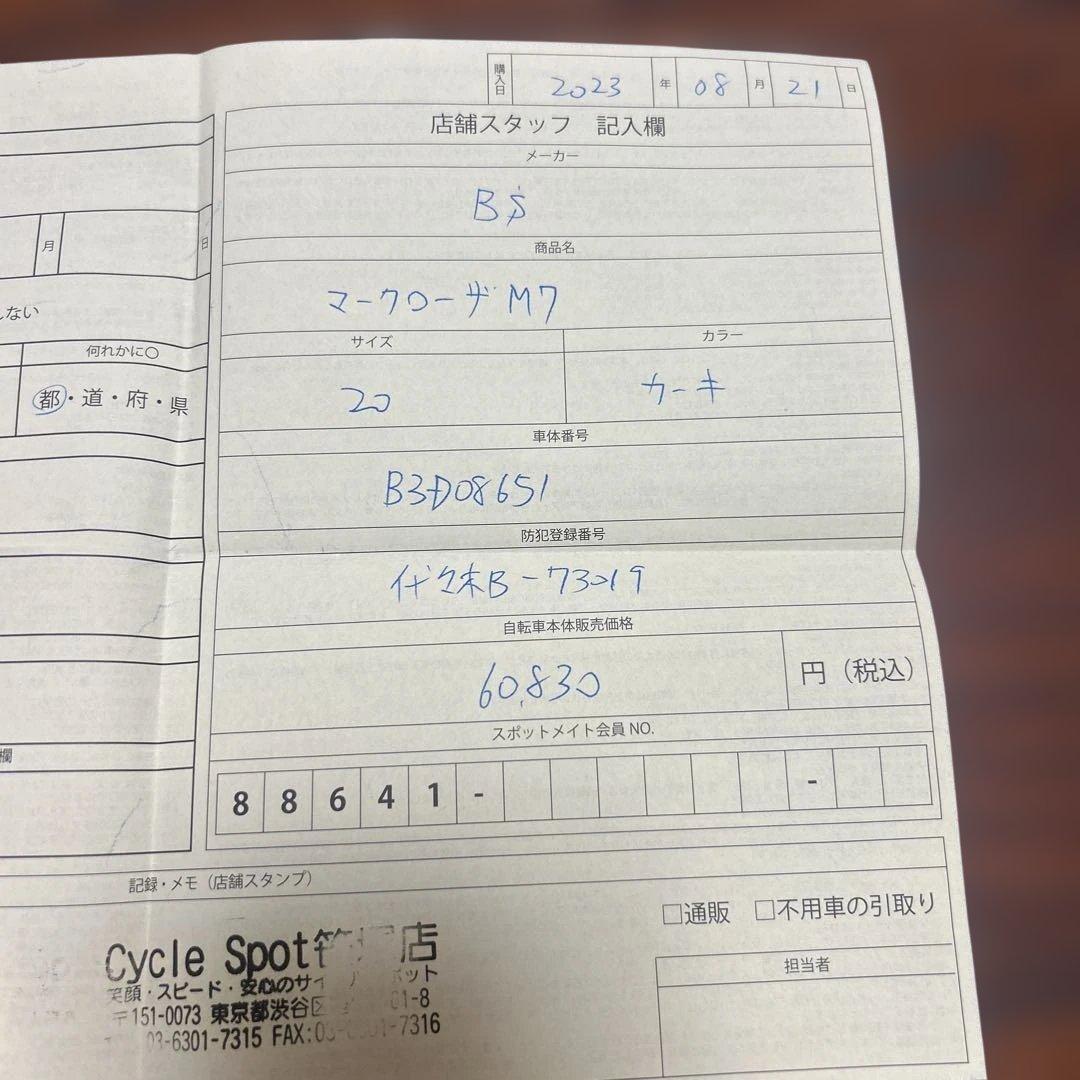 購入日 2023 年 08 月 21 日
店舗スタッフ 記入欄
メーカー
BS
商品名
マークローザ M7
サイズ カラー
20 カーキ
車体番号
B3D08651
防犯登録番号
代々木B-73019
自転車本体販売価格
60,830 円（税込）
スポットメイト会員 NO.
88641- -
月 日
しない
何れかに○
都・道・府・県
欄
記録・メモ（店舗スタンプ）
□通販 □不用車の引取り
担当者
Cycle Spot 店
笑顔・スピード・安心のサイ ット
〒151-0073 東京都渋谷区 01-8
03-6301-7315 FAX:03- 01-7316